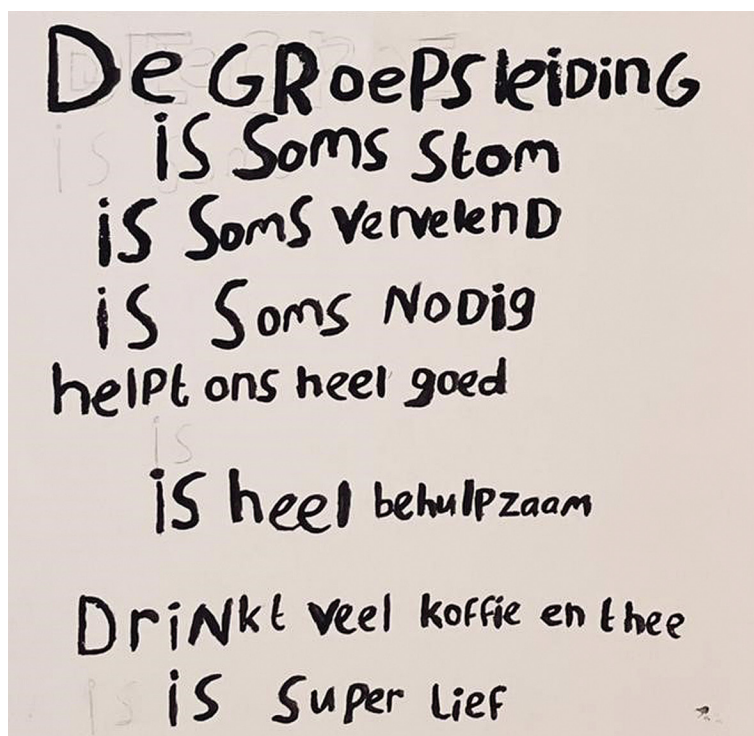 De GRoePSleiDinG
is Soms Stom
is Soms VervelenD
is Soms NoDig
helPt ons heel goed
is
is heel behulPzaam
DriNkt veel koffie en thee
is super Lief